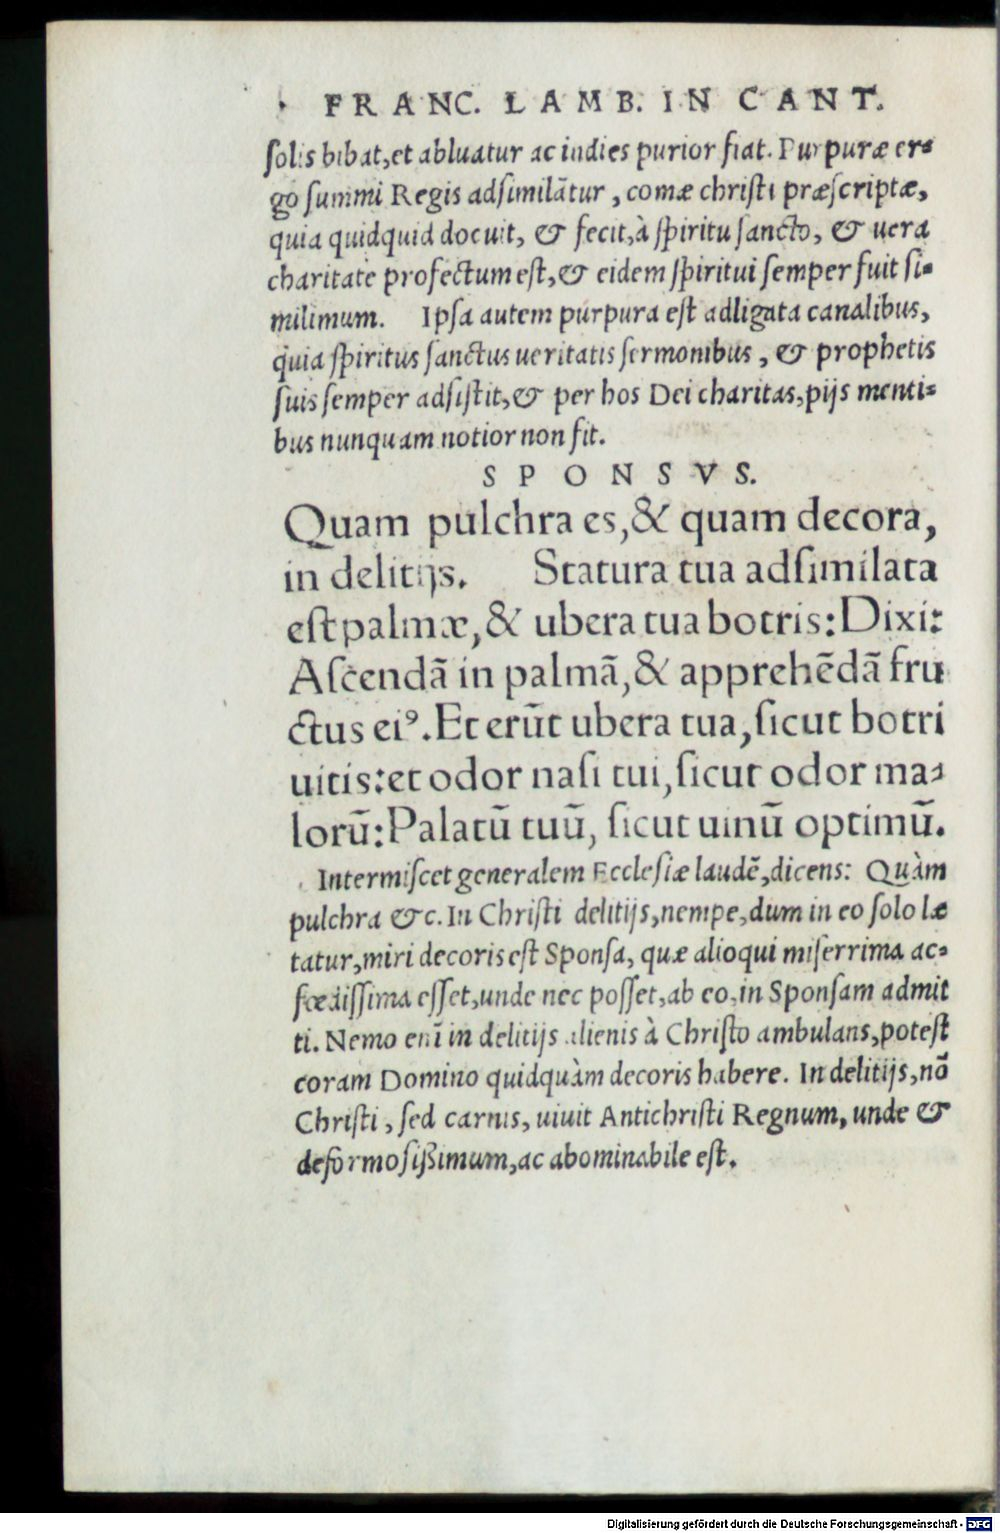 FRANC. LAMB. IN CANT.
solis bibat, et abluatur ac indies purior fiat. Purpuræ er-
go summi Regis adsimilãtur, comæ christi præscriptæ,
quia quidquid docuit, & fecit, à spiritu sancto, & uera
charitate profectum est, & eidem spiritui semper fuit si-
milimum. Ipsa autem purpura est adligata canalibus,
quia spiritus sanctus ueritatis sermonibus, & prophetis
suis semper adsistit, & per hos Dei charitas, pijs menti-
bus nunquam notior non fit.
SPONSVS.
Quam pulchra es, & quam decora,
in delitijs. Statura tua adsimilata
est palmæ, & ubera tua botris: Dixi:
Ascendã in palmã, & apprehẽdã fru
ctus eiꝰ. Et erũt ubera tua, sicut botri
uitis: et odor nasi tui, sicut odor ma-
lorũ: Palatũ tuũ, sicut uinũ optimũ.
Intermiscet generalem Ecclesiæ laudẽ, dicens: Quàm
pulchra &c. In Christi delitijs, nempe, dum in eo solo læ
tatur, miri decoris est Sponsa, quæ alioqui miserrima ac-
fœdissima esset, unde nec posset, ab eo, in Sponsam admit
ti. Nemo enĩ in delitijs alienis à Christo ambulans, potest
coram Domino quidquàm decoris habere. In delitijs, nõ
Christi, sed carnis, uiuit Antichristi Regnum, unde &
deformosißimum, ac abominabile est.
Digitalisierung gefördert durch die Deutsche Forschungsgemeinschaft - DFG